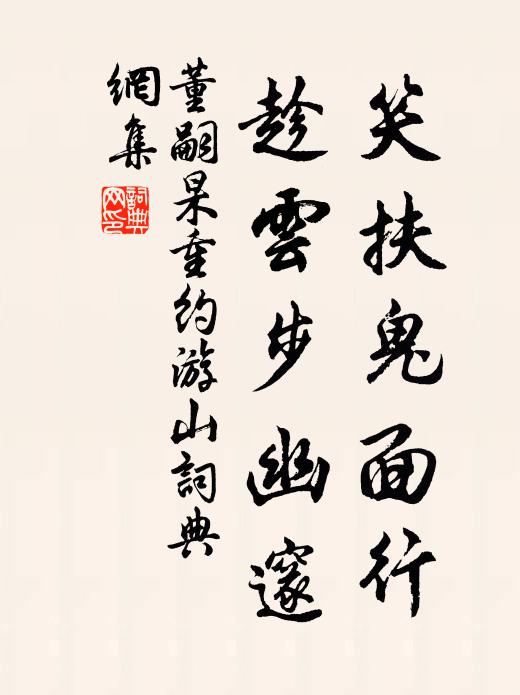 笑扶鬼面行
趁雲步幽邃
董嗣杲重約游山詞典
網集
詞典
网印